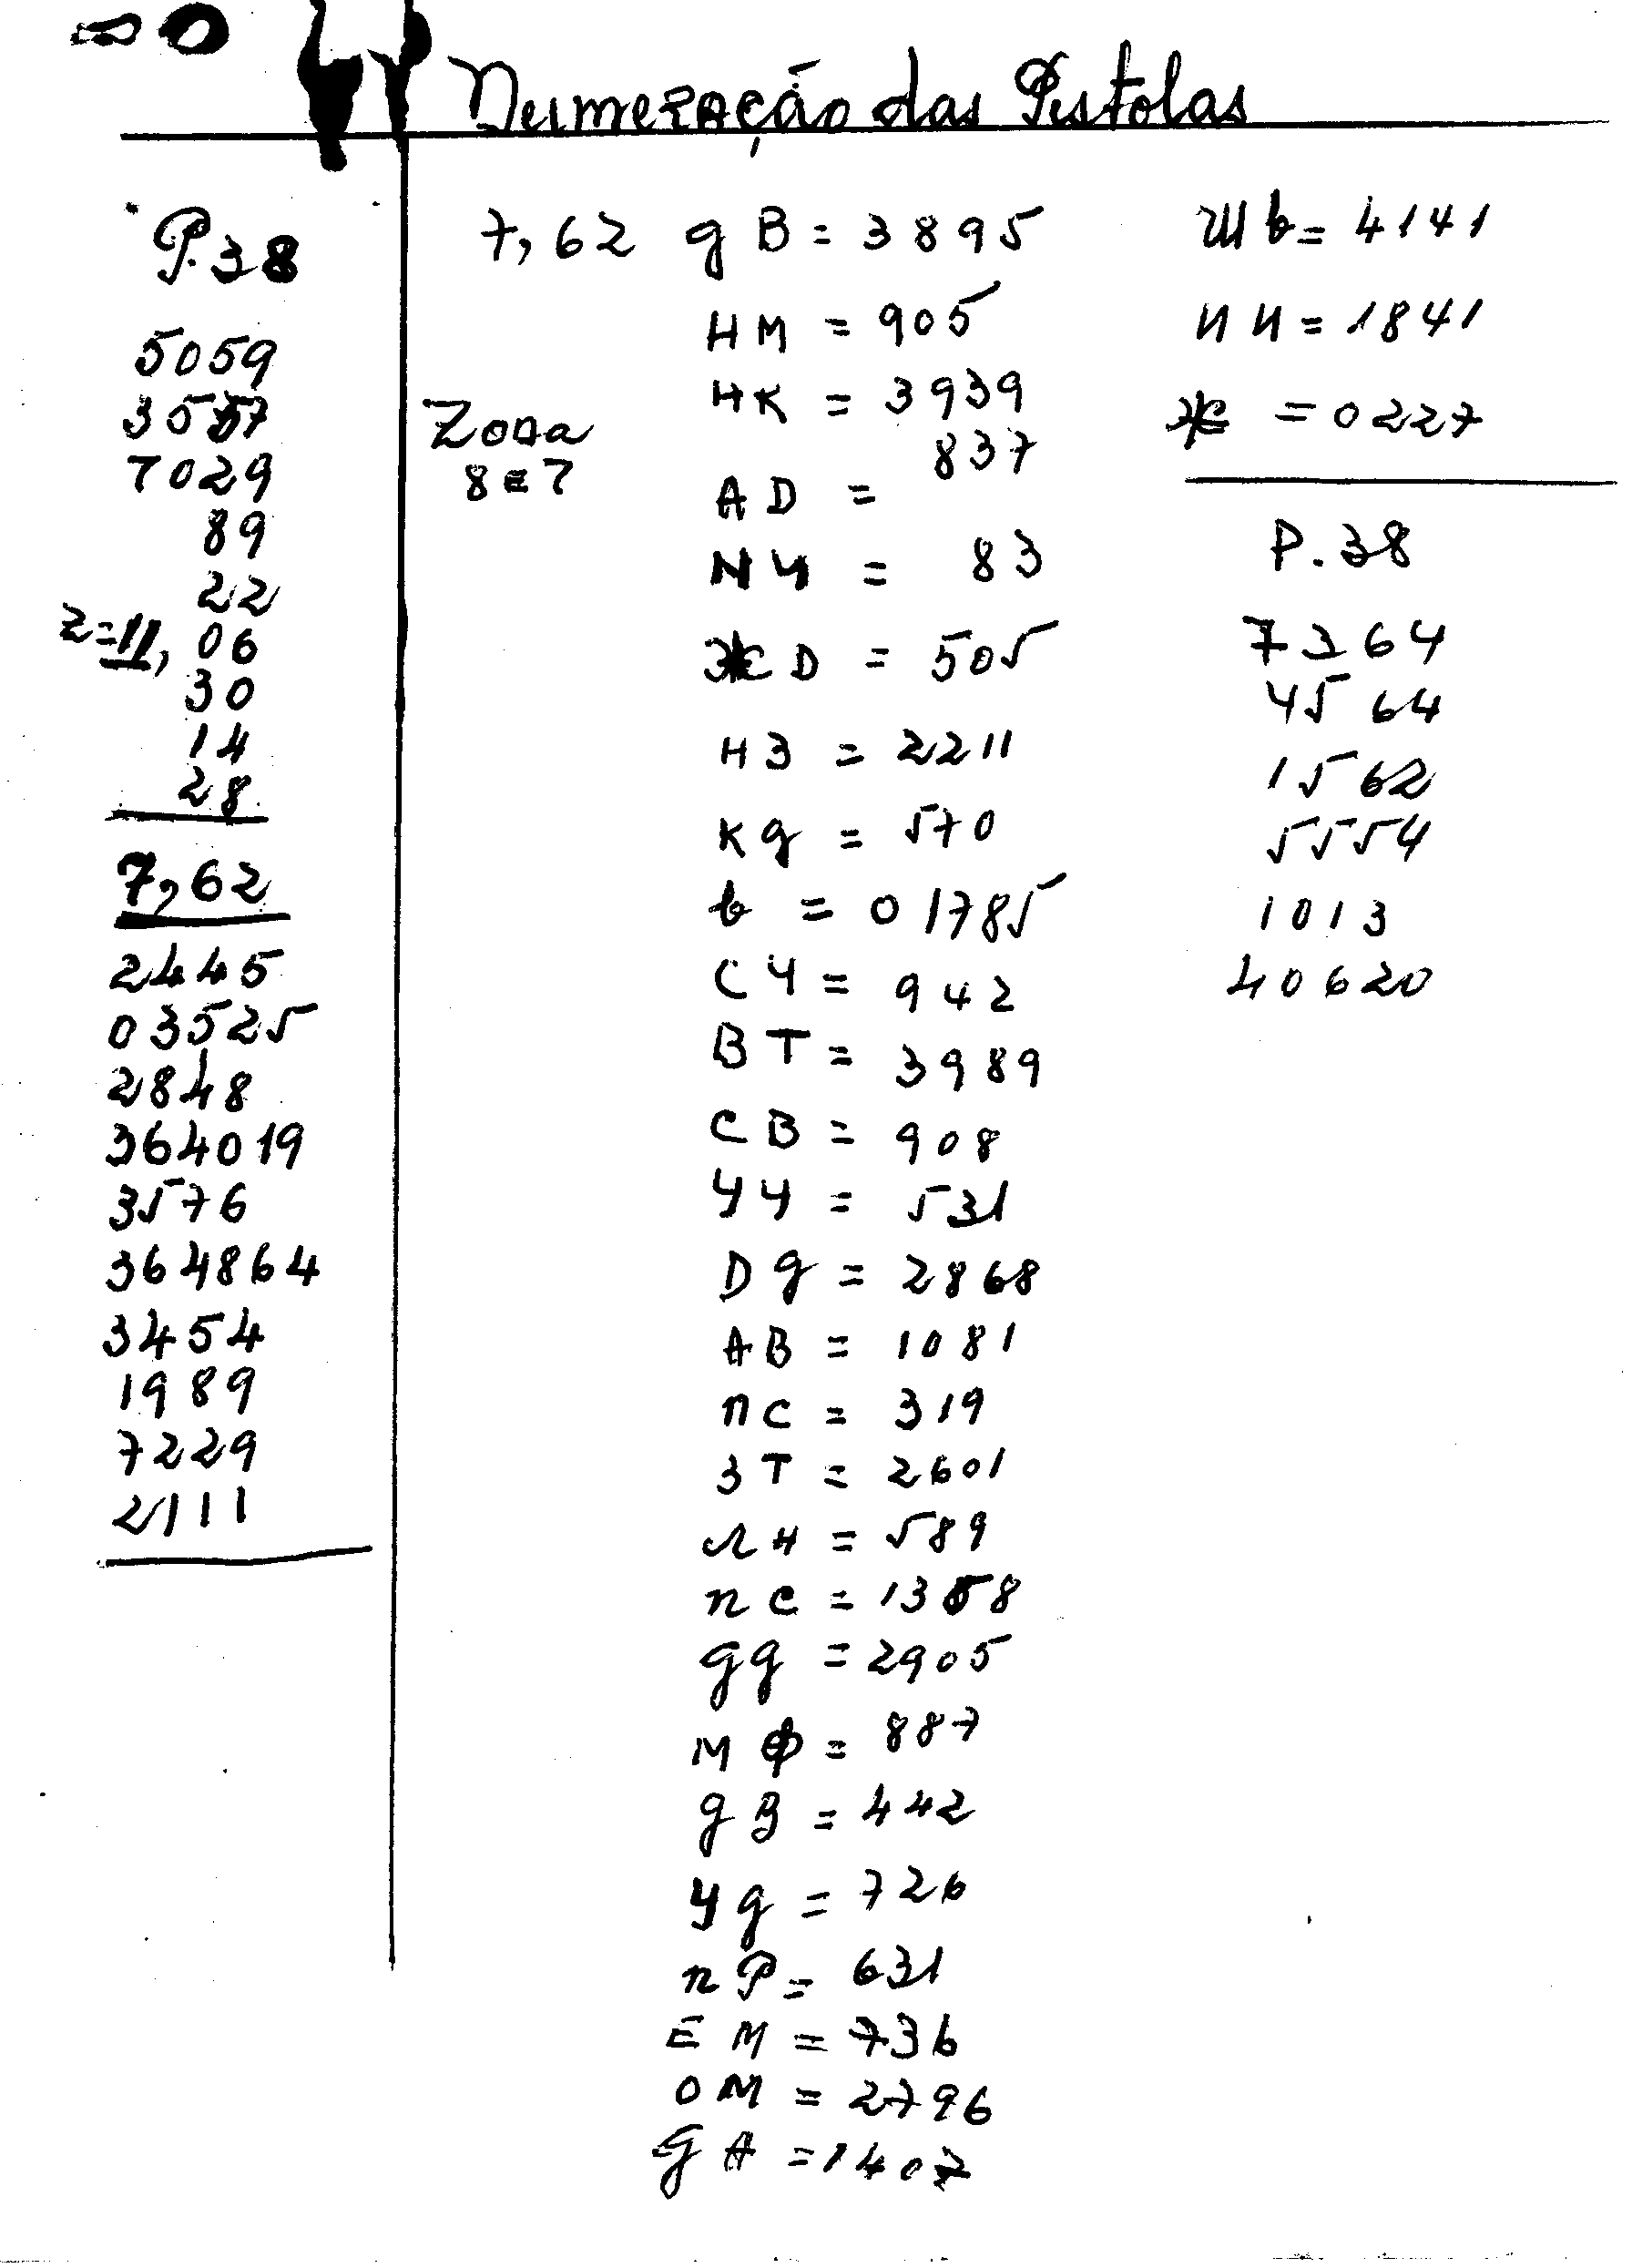 Numeração das Pistolas
P.38
5059
7029
89
22
Z=11, 06
30
14
28
7,62
2445
03525
2848
364019
3576
364864
3454
1989
7229
2111
Zona
8 e 7
7,62 gB = 3895
HM = 905
HK = 3939
AD = 837
NЧ = 83
ЖD = 505
HЗ = 2211
Kg = 570
b = 01785
CЧ = 942
BT = 3989
CB = 908
ЧЧ = 531
Dg = 2868
AB = 1081
пC = 319
ЗT = 2601
ЛH = 589
nC = 1358
gg = 2905
MФ = 887
gB = 442
Уg = 726
nP = 631
EM = 736
OM = 2796
GA = 1407
Шb = 4141
ИИ = 1841
Ж = 0227
P.38
7364
4564
1562
5554
1013
40620